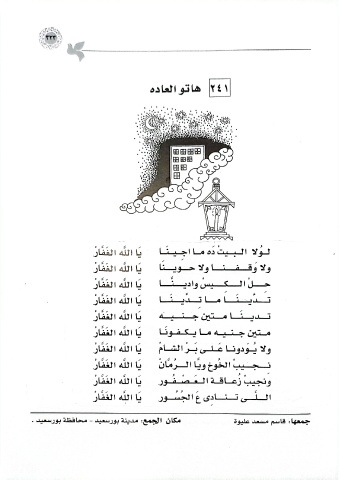 ٢٢٣
٢٤١ هاتو العاده
لَوْلا البيتْ دَه ما جِينَا يَا اللَّه الغَفَّارْ
ولا وَقفنا ولا حوينَا يَا اللَّه الغَفَّارْ
حل الكيس وادينَّا يَا اللَّه الغَفَّارْ
تدِّينَا ما تدِّينَا يَا اللَّه الغَفَّارْ
تدينا متين جنيه يَا اللَّه الغَفَّارْ
متين جنيه ما يكفونَا يَا اللَّه الغَفَّارْ
ولا يُودونا على بَر الشامْ يَا اللَّه الغَفَّارْ
نجيب الخوخ ويَّا الرمَّانْ يَا اللَّه الغَفَّارْ
ونجيب زُعاقة العصْفور يَا اللَّه الغَفَّارْ
اللى تنادى عَ الجُسور يَا اللَّه الغَفَّارْ
جمعها: قاسم مسعد عليوة مكان الجمع: مدينة بورسعيد - محافظة بورسعيد.